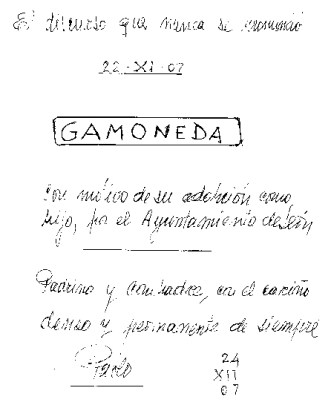 El discurso que nunca se pronunció
22-XI-07
GAMONEDA
con motivo de su adopción como
hijo, por el Ayuntamiento de León
Padrino y compadre, con el cariño
denso y permanente de siempre
24
XII
07